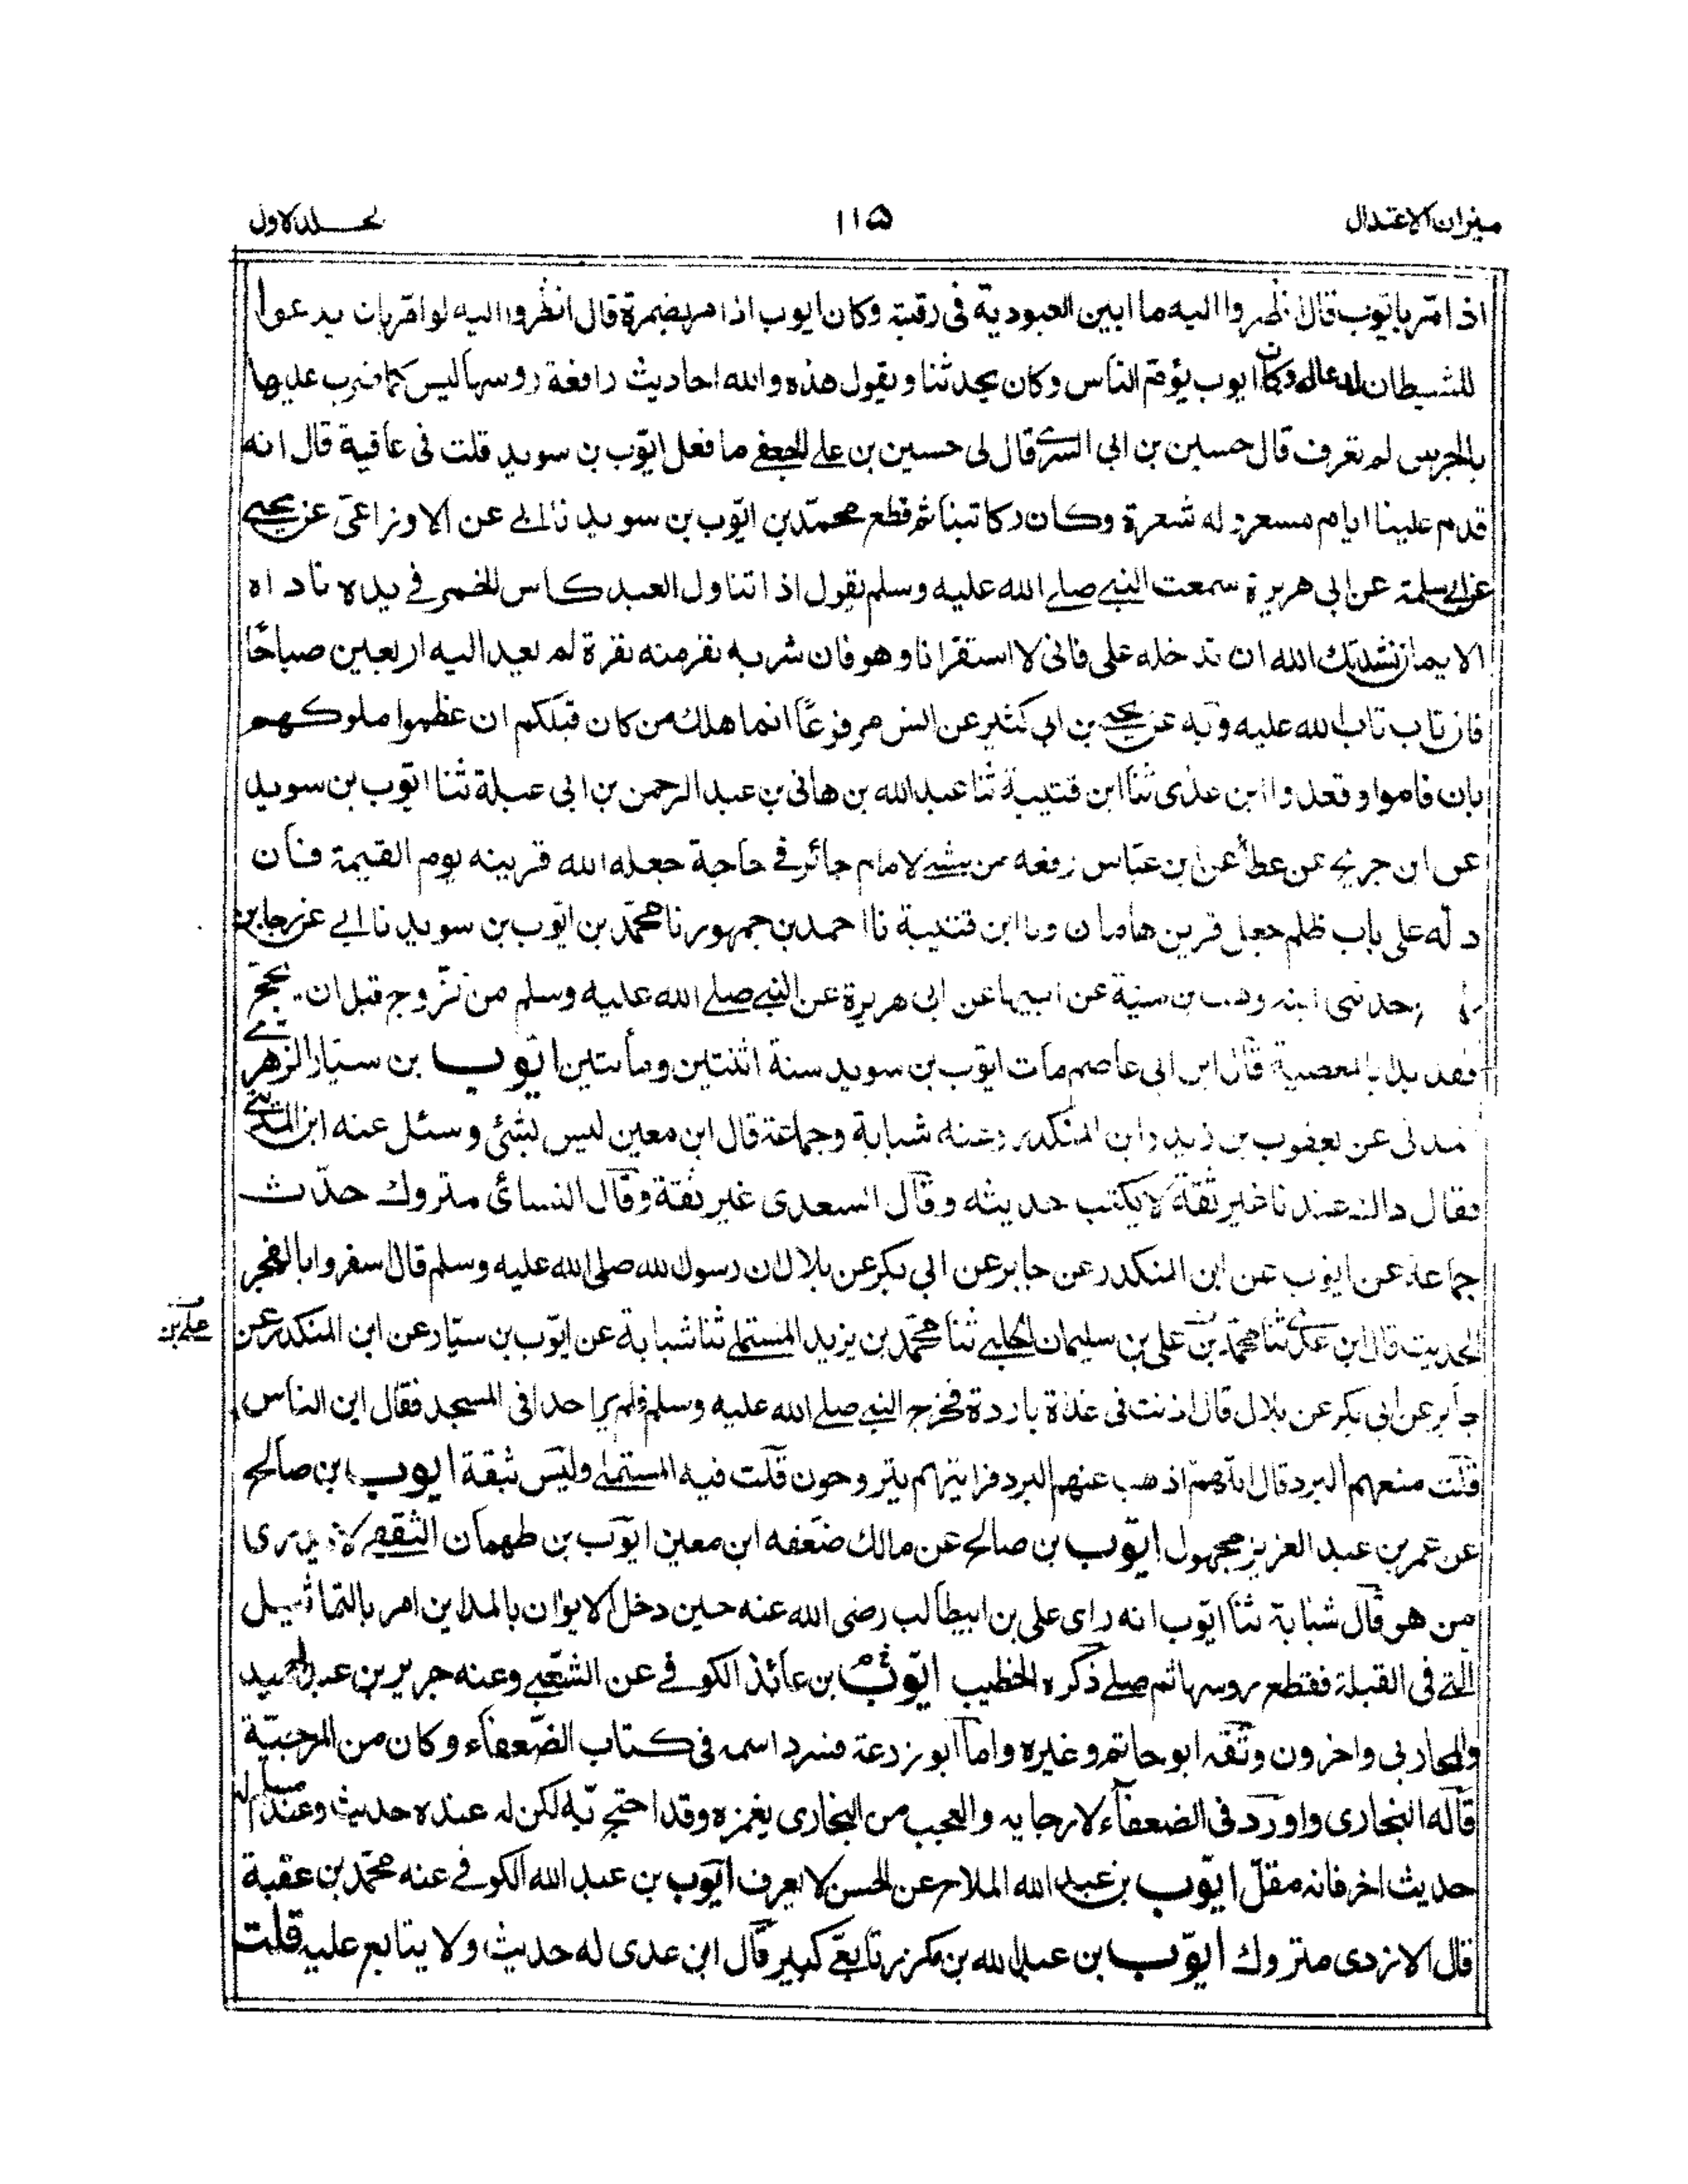 ميزان الاعتدال
١١٥
لجلد الاول
اذا مر بايوب قال انظروا اليه ما ابين العبودية فى رقبته وكان ايوب اذا مر بضمرة قال انظروا اليه لو امر بان يدعوا
للشيطان لدعا له وكان ايوب يؤم الناس وكان يحدثنا ويقول هذه والله احاديث رافعة روسها ليس كما ضرب عليها
بالجرس لم تعرف قال حسين بن ابى السرى قال لى حسين بن على الجعفى ما فعل ايوب بن سويد قلت فى عافية قال انه
قدم علينا ايام مسعر وله شعرة وكان كاتبنا ثم قطع محمد بن ايوب بن سويد نا ابى عن الاوزاعى عن يحيى
عن ابى سلمة عن ابى هريرة سمعت النبى صلى الله عليه وسلم يقول اذا تناول العبد كاس الخمر فى يده ناداه
الايمان نشدتك الله ان تدخله على فانى لا استقر انا وهو فان شربه نفر منه نفرة لم يعد اليه اربعين صباحًا
فان تاب تاب الله عليه وبه عن يحيى بن ابى كثير عن انس مرفوعًا انما هلك من كان قبلكم ان عظموا ملوكهم
بان قاموا وقعدوا ابن عدى ثنا ابن قتيبة ثنا عبد الله بن هانى بن عبد الرحمن بن ابى عبلة ثنا ايوب بن سويد
عن ابن جريج عن عطا عن ابن عباس رفعه من مشى لامام جائر فى حاجة جعله الله قرينه يوم القيمة فان
دله على باب ظلم جعل قرين هامان ونا ابن قتيبة نا احمد بن جمهور نا محمد بن ايوب بن سويد نا ابى عن رجا بن
حدثنى ابنه وهب بن منبة عن ابيها عن ابى هريرة عن النبى صلى الله عليه وسلم من تزوج قبل ان يحج
فقد بدا بالمعصية قال ابن ابى عاصم مات ايوب بن سويد سنة اثنتين ومأتين ايوب بن سيار الزهرى
المدنى عن يعقوب بن زيد وابن المنكدر وعنه شبابة وجماعة قال ابن معين ليس بشئ وسئل عنه ابن المدينى
فقال ذالك عندنا غير ثقة لا يكتب حديثه وقال السعدى غير ثقة وقال النسائى متروك حدث
جماعة عن ايوب عن ابن المنكدر عن جابر عن ابى بكر عن بلال ان رسول الله صلى الله عليه وسلم قال اسفروا بالفجر
الحديث قال ابن عدى ثنا محمد بن على بن سليمان الحلبى ثنا محمد بن يزيد المستملى ثنا شبابة عن ايوب بن سيار عن ابن المنكدر عن
على بن
جابر عن ابى بكر عن بلال قال اذنت فى غداة باردة فخرج النبى صلى الله عليه وسلم فلم ير احدا فى المسجد فقال اين الناس
قلت منعهم البرد قال اللهم اذهب عنهم البرد فرايتهم يتروحون قلت فيه المستملى وليس بثقة ايوب بن صالح
عن عمر بن عبد العزيز مجهول ايوب بن صالح عن مالك ضعفه ابن معين ايوب بن طهمان الثقفى لا يدرى
من هو قال شبابة ثنا ايوب انه راى على بن ابيطالب رضى الله عنه حين دخل الايوان بالمداين امر بالتماثيل
التى فى القبلة فقطع روسها ثم صلى ذكره الخطيب ايوب بن عائذ الكوفى عن الشعبى وعنه جرير بن عبد الحميد
والمحاربى واخرون وثقه ابو حاتم وغيره واما ابو زرعة فسرد اسمه فى كتاب الضعفاء وكان من المرجئة
قاله البخارى واورد فى الضعفاء لارجايه والعجب من البخارى يغمزه وقد احتج به لكن له عنده حديث وعند مسلم له
حديث اخر فانه مقل ايوب بن عبد الله الملاح عن الحسن لا يعرف ايوب بن عبد الله الكوفى عنه محمد بن عقبة
قال الازدى متروك ايوب بن عبد الله بن مكرز تابعى كبير قال ابن عدى له حديث ولا يتابع عليه قلت